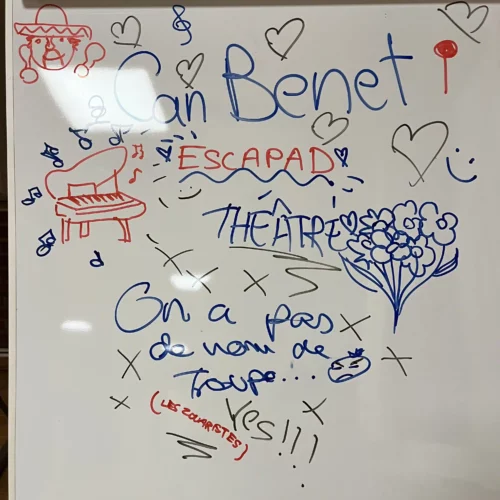 Can Benet
ESCAPAD
THÉÂTRE
On a pas
de nom de
Troupe...
Yes!!!
(LES ZOUARISTES)